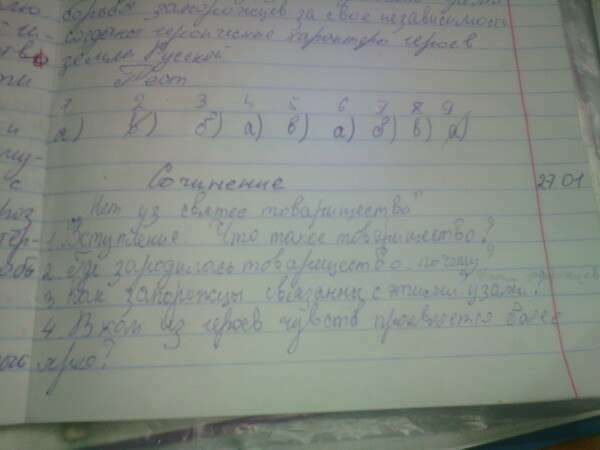 борьбы запорожцев за свою независимость
созданы героические характеры героев
земли Русской
Тест
1 2 3 4 5 6 7 8 9
а) в) б) а) в) а) б) в) а)
Сочинение 27.01
"Нет уз святее товарищества"
1. Вступление. Что такое товарищество?
2. Где зародилось товарищество. почему?
3. Как запорожцы связанны с этими узами?
4. В ком из героев чувств проявляется более
ярко?